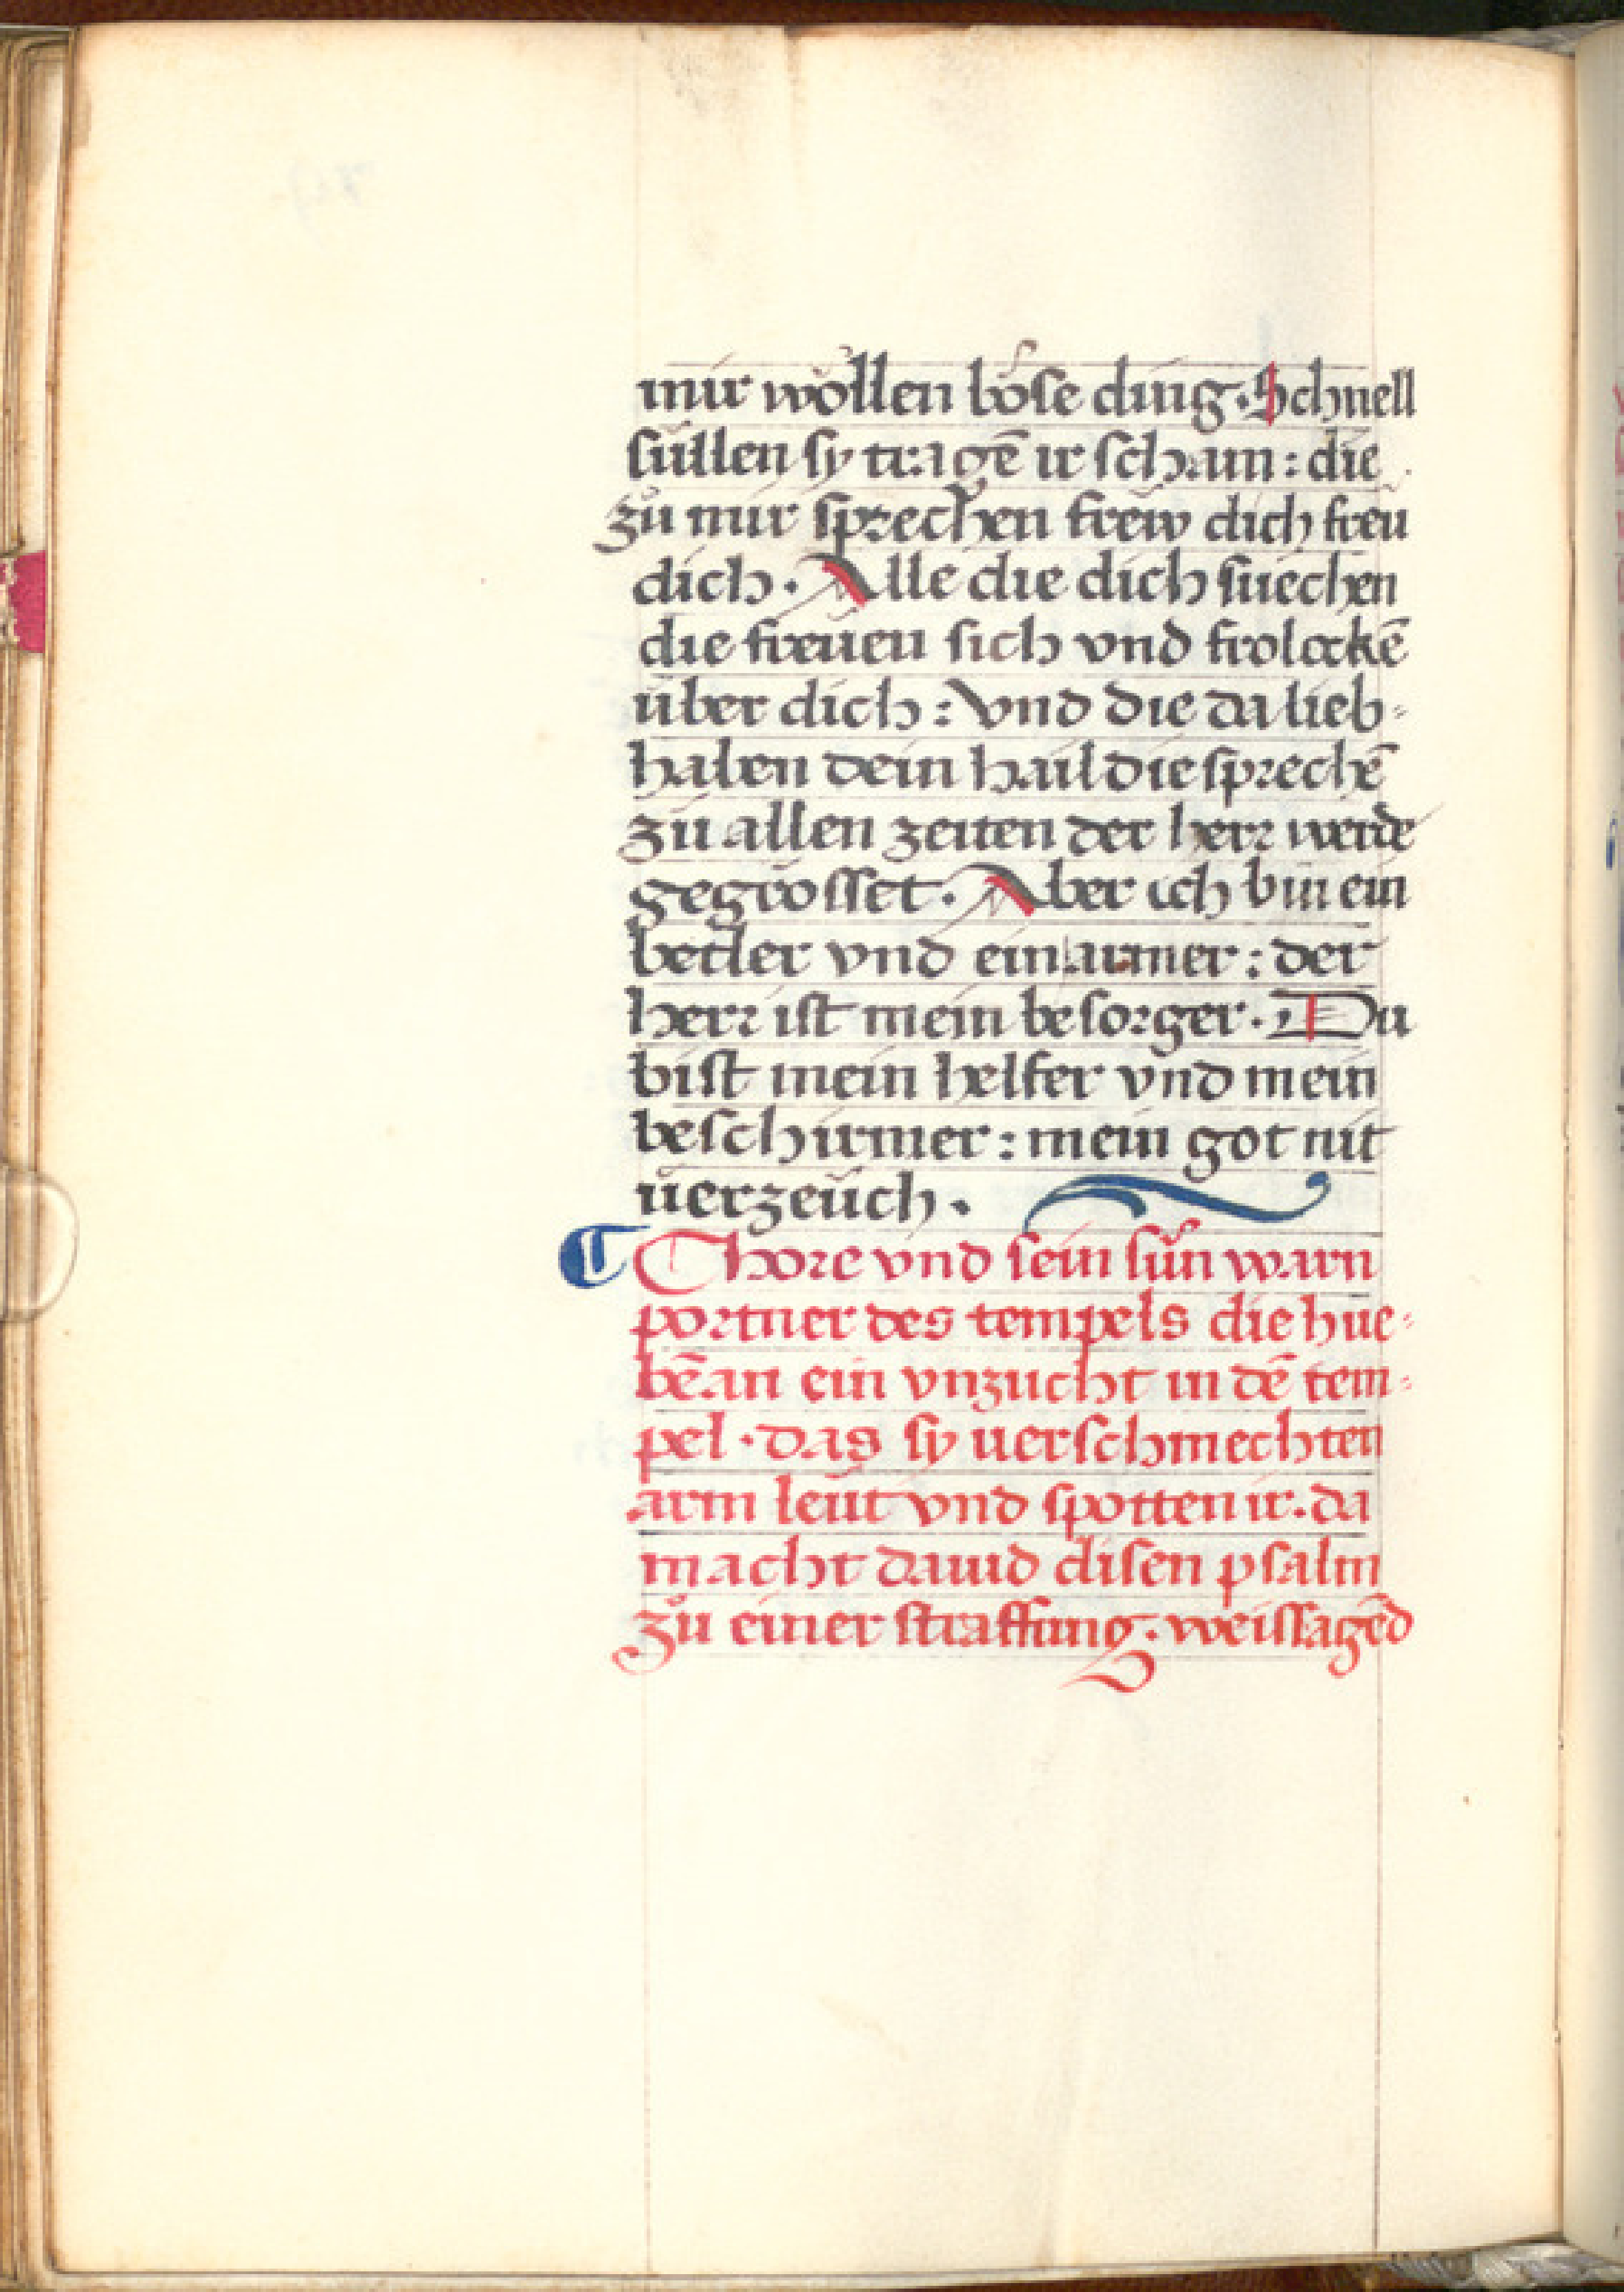 mir wöllen böse ding. Schnell
süllen sy tragē ir scham: die
zů mir sprechen frëw dich freü
dich. Alle die dich süechen
die freuen sich vnd frolockē
über dich: vnd die da lieb⸗
haben dein hail die sprechē
zů allen zeiten der herr werde
gegrösset. Aber ich bin ein
betler vnd ein armer: der
herr ist mein besorger. Du
bist mein helfer vnd mein
beschirmer: mein got nit
verzeüch.
Chore vnd sein sün warn
portner des tempels die hue⸗
bē an ein vnzucht in dē tem⸗
pel. das sy uerschmechten
arm leüt vnd spotten ir. da
macht dauid disen psalm
zů einer straffung. weissagēd